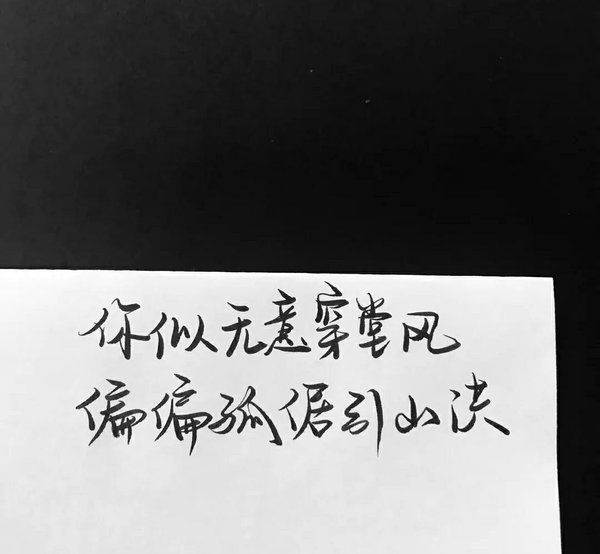 你似无意穿堂风
偏偏孤倨引山洪